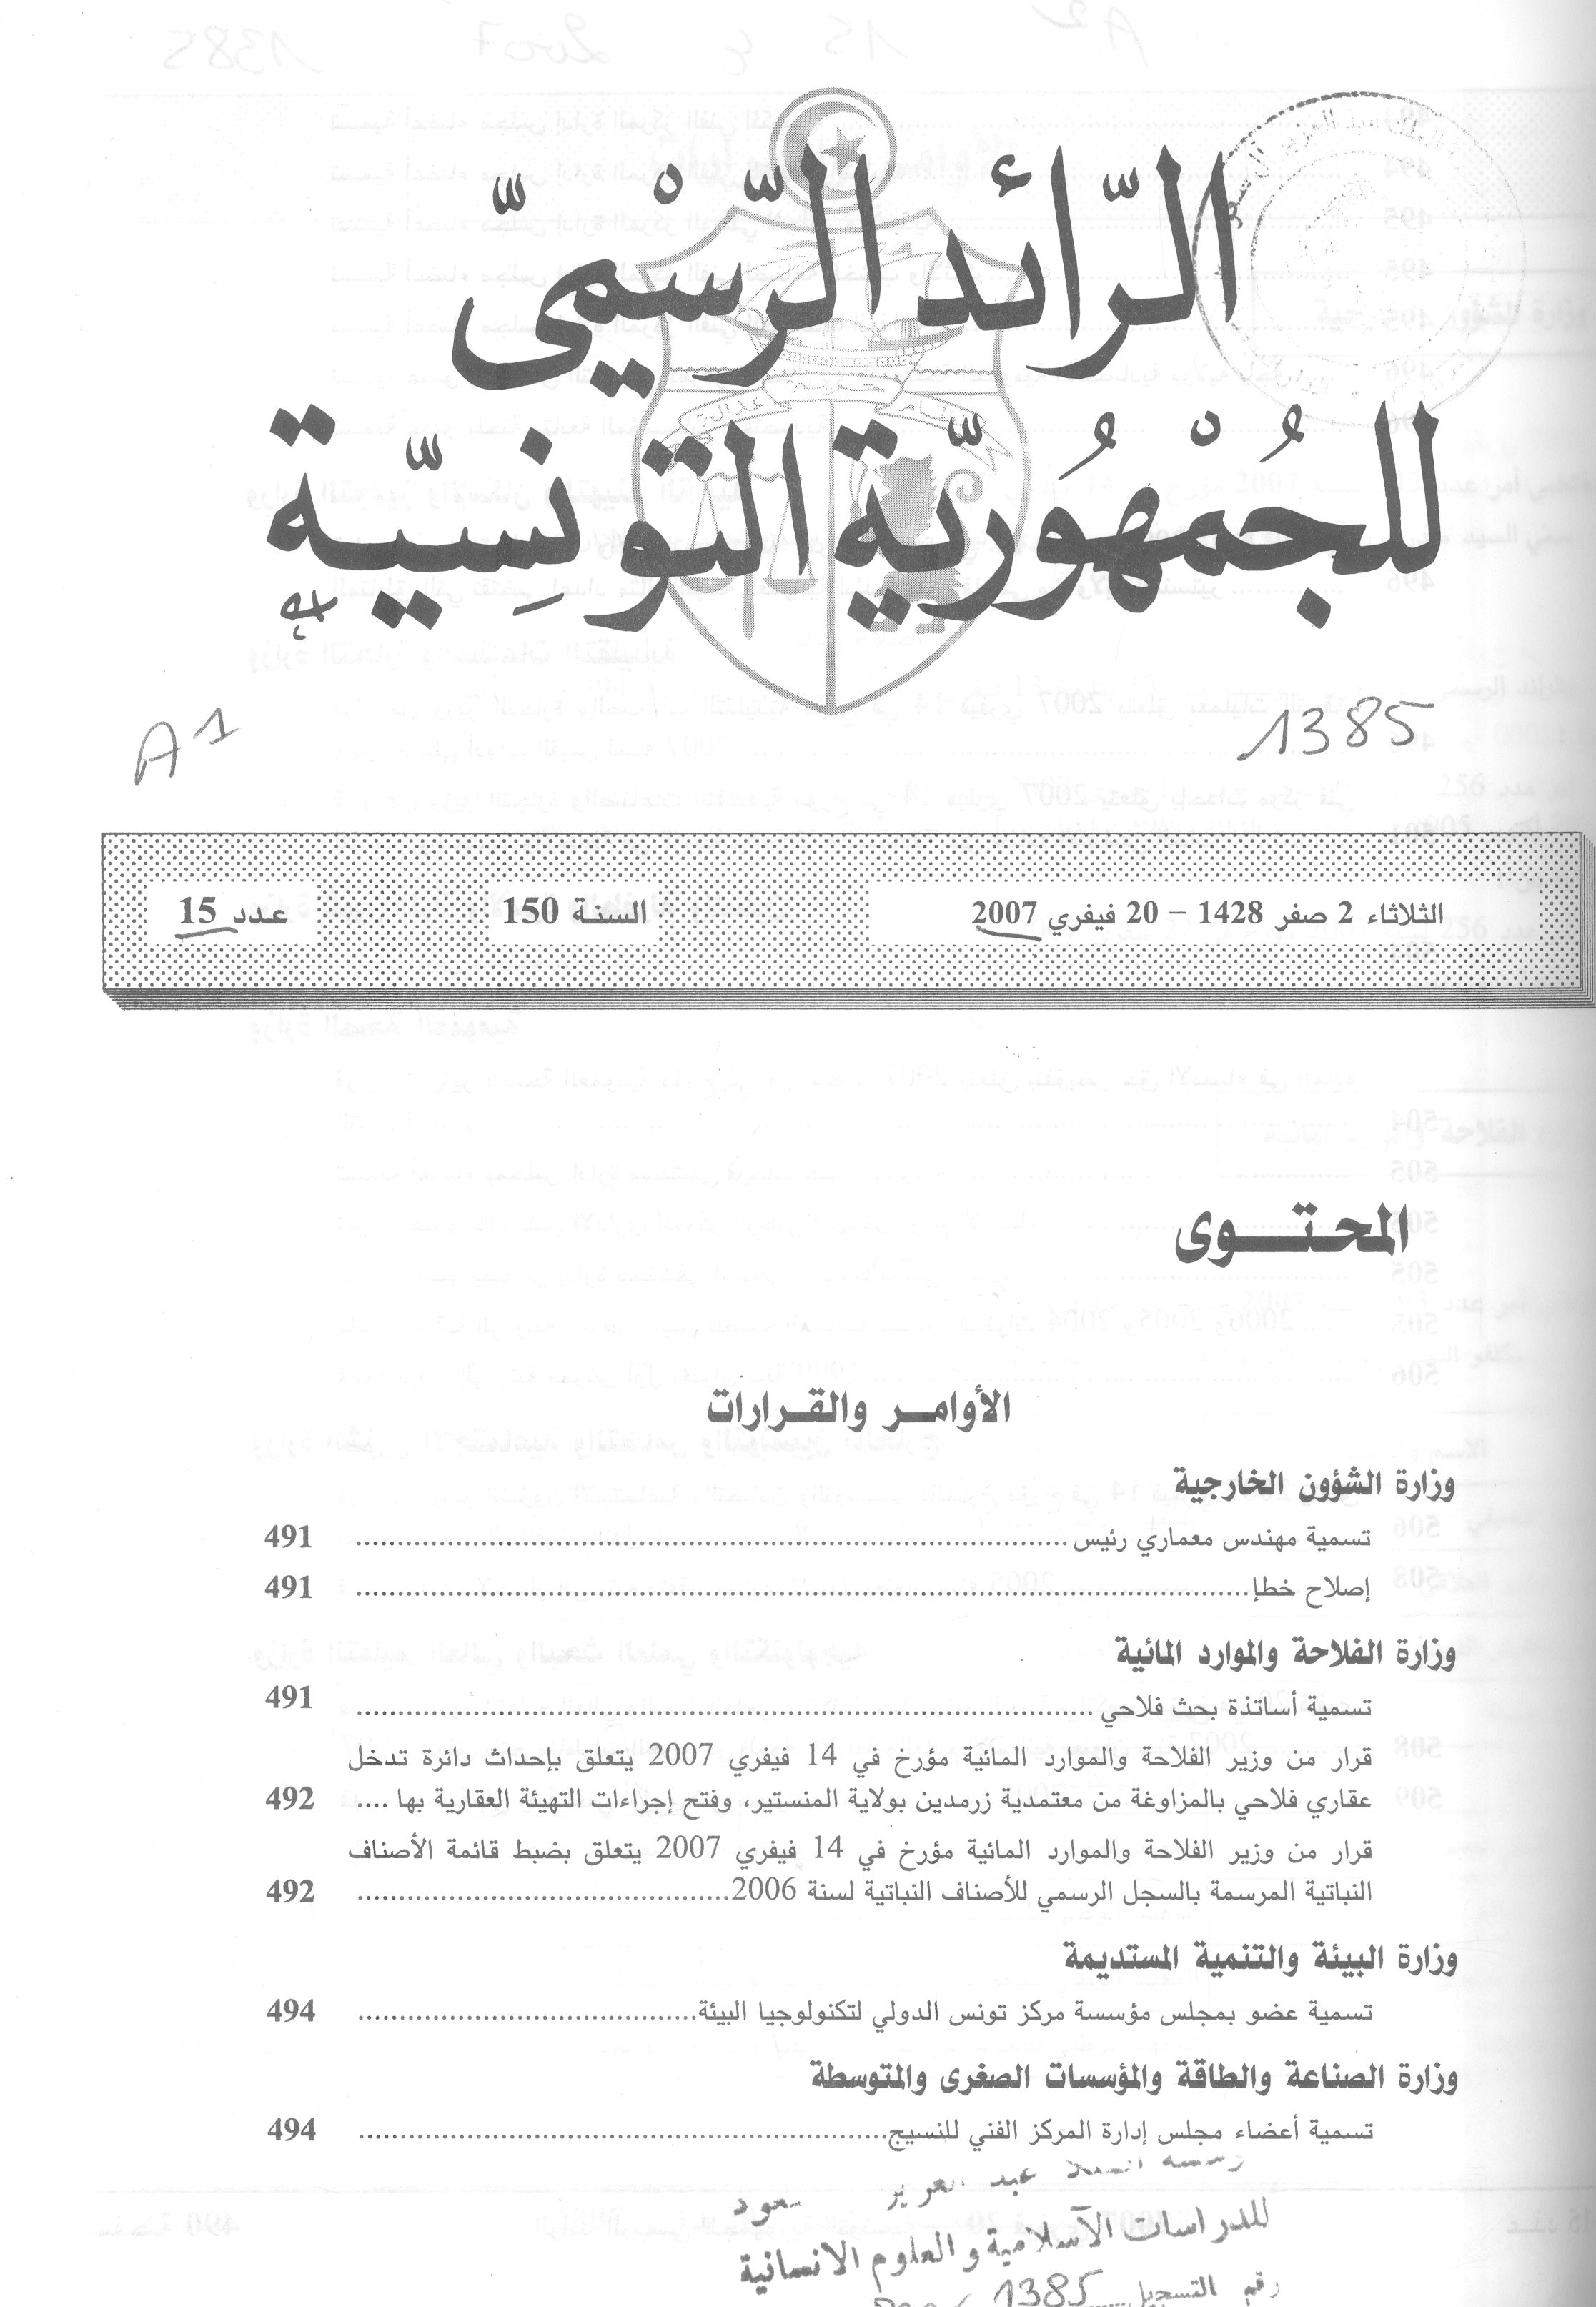 الرّائد الرّسْميّ
للجُمْهُوريّة التّونِسيّة
A1
1385
الثلاثاء 2 صفر 1428 – 20 فيفري 2007
السنة 150
عدد 15
المحتوى
الأوامر والقرارات
وزارة الشؤون الخارجية
تسمية مهندس معماري رئيس 491
إصلاح خطإ 491
وزارة الفلاحة والموارد المائية
تسمية أساتذة بحث فلاحي 491
قرار من وزير الفلاحة والموارد المائية مؤرخ في 14 فيفري 2007 يتعلق بإحداث دائرة تدخل
عقاري فلاحي بالمزاوغة من معتمدية زرمدين بولاية المنستير، وفتح إجراءات التهيئة العقارية بها .... 492
قرار من وزير الفلاحة والموارد المائية مؤرخ في 14 فيفري 2007 يتعلق بضبط قائمة الأصناف
النباتية المرسمة بالسجل الرسمي للأصناف النباتية لسنة 2006 492
وزارة البيئة والتنمية المستديمة
تسمية عضو بمجلس مؤسسة مركز تونس الدولي لتكنولوجيا البيئة 494
وزارة الصناعة والطاقة والمؤسسات الصغرى والمتوسطة
تسمية أعضاء مجلس إدارة المركز الفني للنسيج 494
عبد سعود
للدراسات الآسلامية والعلوم الانسانية
رقم التسجيل 1385